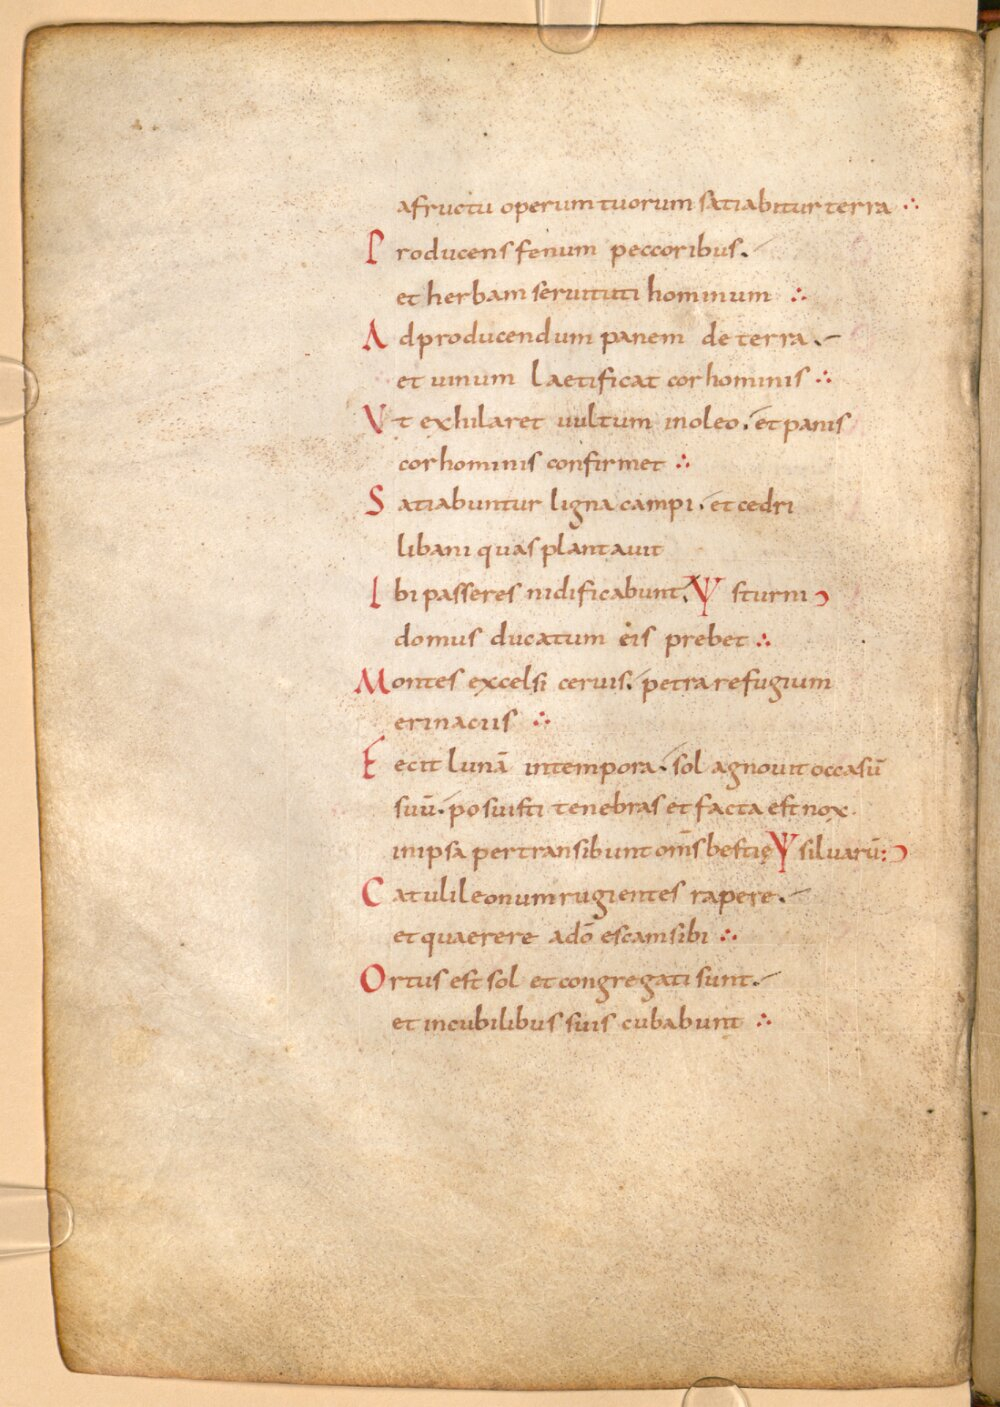 afructu operum tuorum satiabitur terra ∴
Producens fenum peccoribus.
et herbam seruituti hominum ∴
Ad producendum panem de terra.
et uinum laetificat cor hominis ∴
Vt exhilaret uultum in oleo. et panis
cor hominis confirmet ∴
Satiabuntur ligna campi. et cedri
libani quas plantauit
Ibi passeres nidificabunt. Ѱ sturni
domus ducatum eis prebet ∴
Montes excelsi ceruis. petra refugium
erinaciis ∴
Fecit lunā in tempora. sol agnouit occasū
suū. posuisti tenebras et facta est nox.
in ipsa pertransibunt om̄s bestię Ѱ siluarū:
Catuli leonum rugientes rapere.
et quaerere a dō escam sibi ∴
Ortus est sol et congregati sunt.
et in cubilibus suis cubabunt ∴